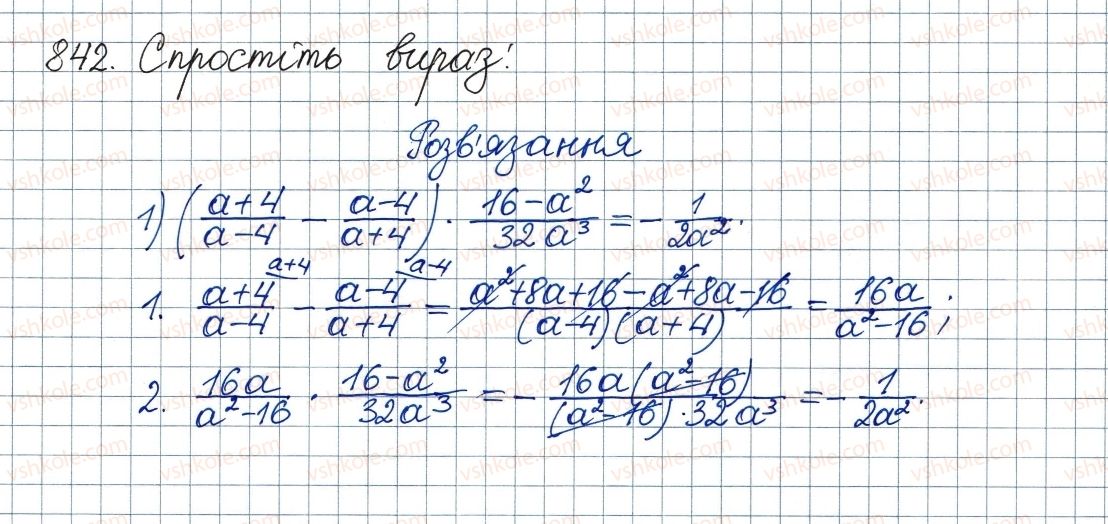 842. Спростіть вираз:
Розв'язання
1) ((a+4)/(a-4) - (a-4)/(a+4)) · (16-a²)/(32a³) = -1/(2a²).
1. (a+4)/(a-4) ^(a+4) - (a-4)/(a+4) ^(a-4) = (a²+8a+16-a²+8a-16)/((a-4)(a+4)) = 16a/(a²-16);
2. 16a/(a²-16) · (16-a²)/(32a³) = -(16a(a²-16))/((a²-16)·32a³) = -1/(2a²).